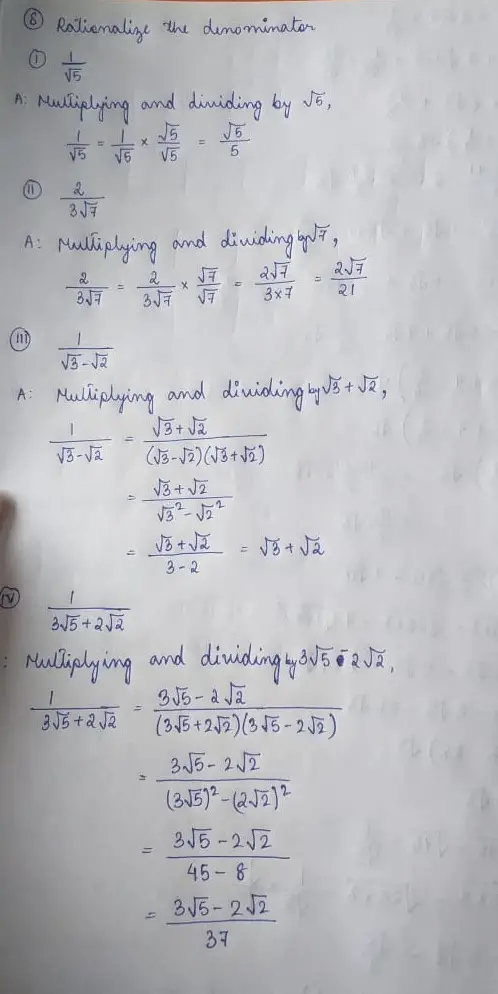 ⑧ Rationalize the denominator
ⓘ 1/√5
A: Multiplying and dividing by √5,
1/√5 = 1/√5 × √5/√5 = √5/5
ⓘⓘ 2/3√7
A: Multiplying and dividing by √7,
2/3√7 = 2/3√7 × √7/√7 = 2√7/3×7 = 2√7/21
ⓘⓘⓘ 1/√3-√2
A: Multiplying and dividing by √3+√2,
1/√3-√2 = √3+√2/(√3-√2)(√3+√2)
= √3+√2/√3²-√2²
= √3+√2/3-2 = √3+√2
iv 1/3√5+2√2
: Multiplying and dividing by 3√5-2√2,
1/3√5+2√2 = 3√5-2√2/(3√5+2√2)(3√5-2√2)
= 3√5-2√2/(3√5)²-(2√2)²
= 3√5-2√2/45-8
= 3√5-2√2/37